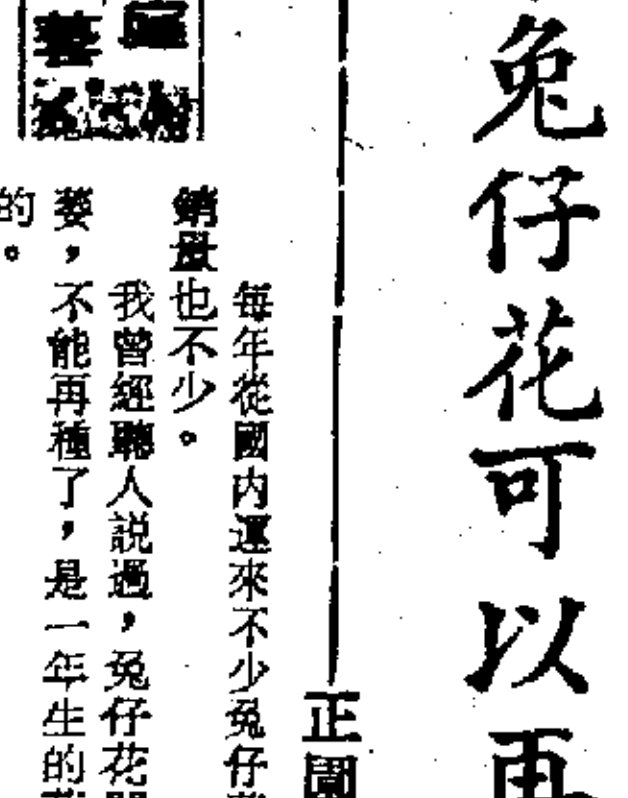 兔仔花可以再
正園
每年從國內運來不少兔仔
銷量也不少。
我曾經聽人説過，兔仔花
萎，不能再種了，是一年生的
的。